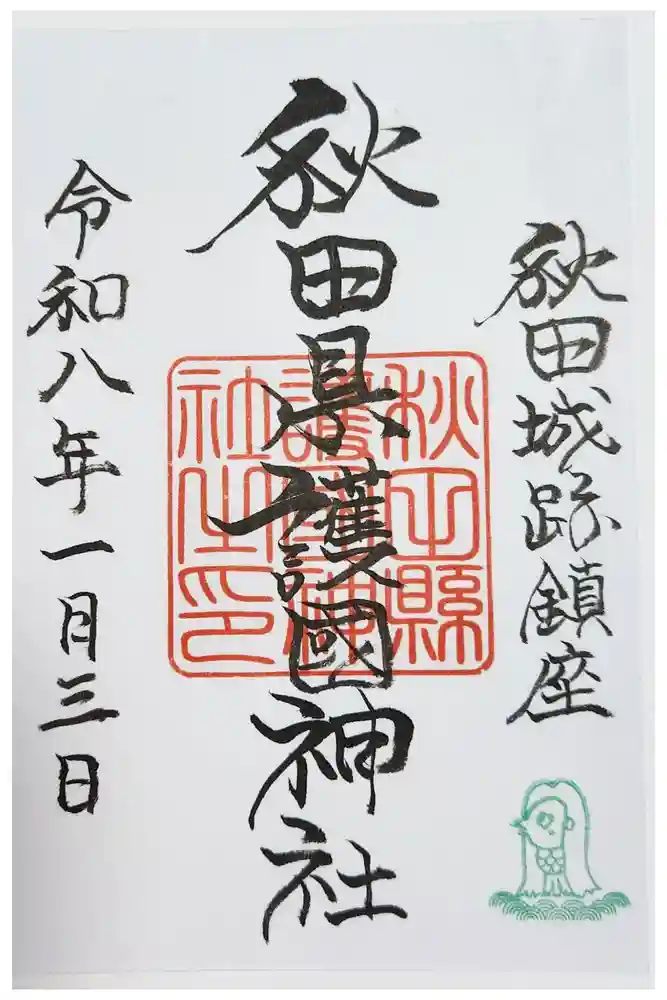 秋田城跡鎮座
秋田県護國神社
秋田縣
護國神
社之印
令和八年一月三日